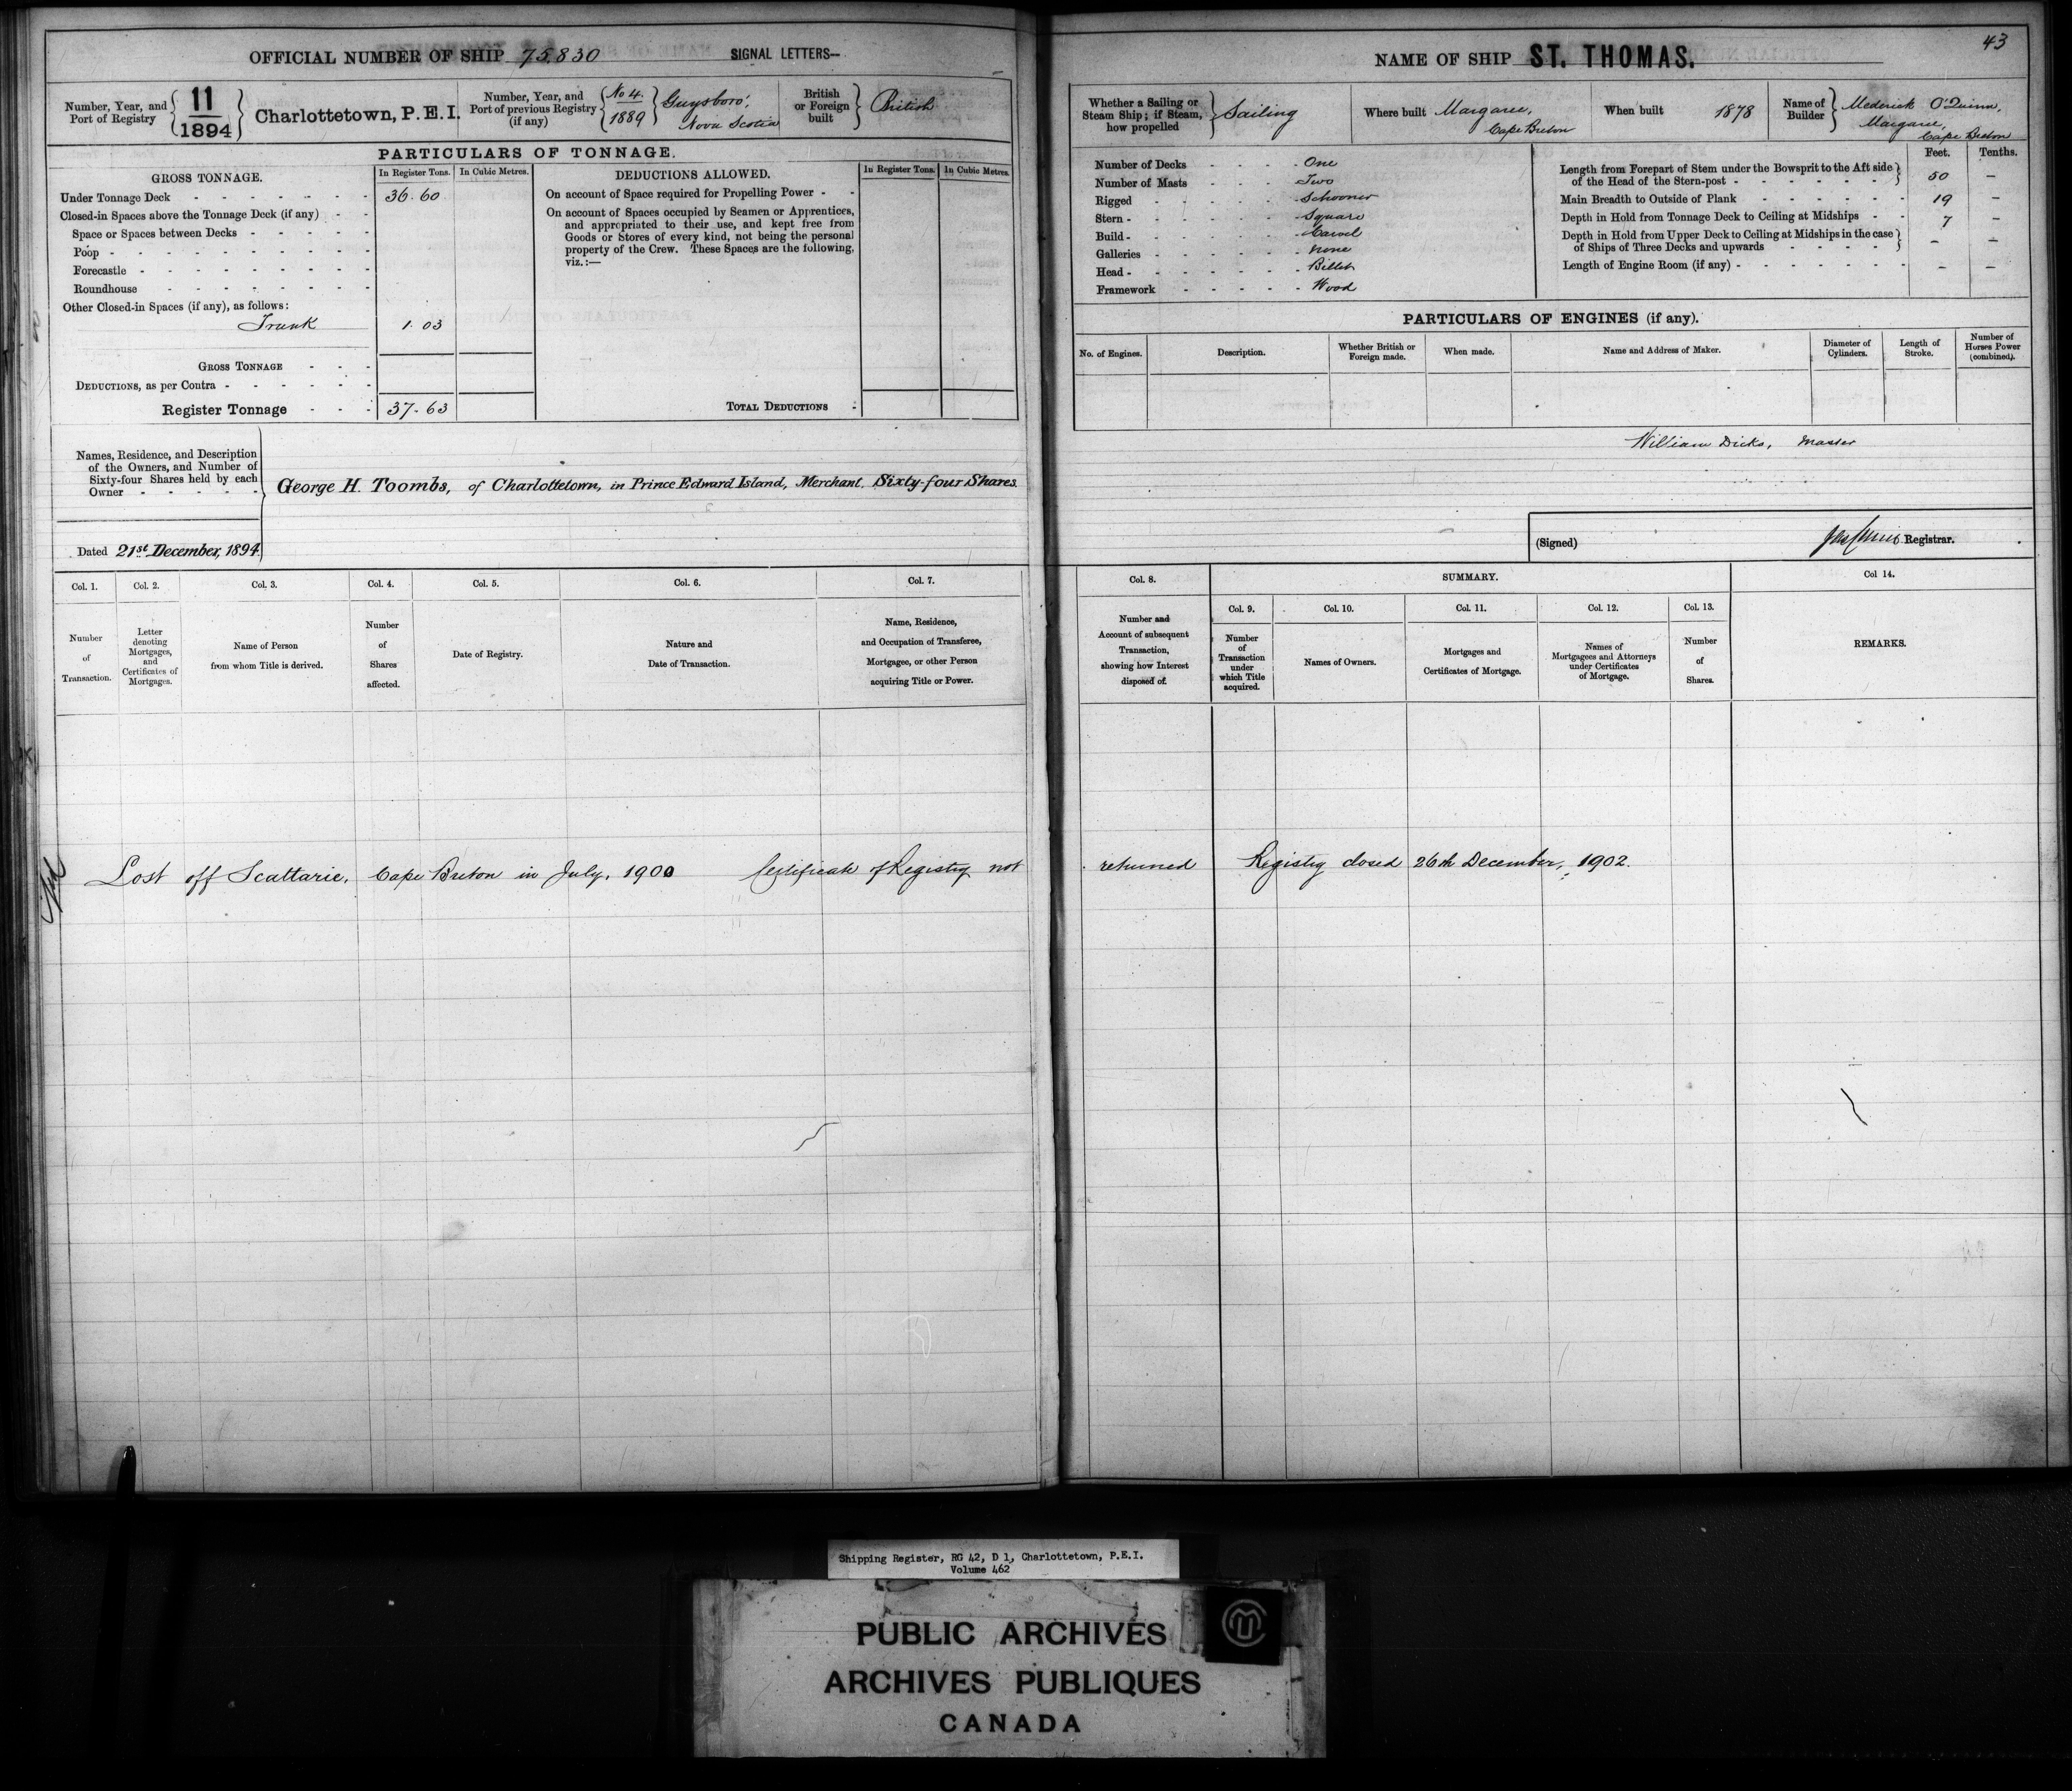 OFFICIAL NUMBER OF SHIP 75,830 SIGNAL LETTERS—
Number, Year, and Port of Registry 11 / 1894 Charlottetown, P.E.I.
Number, Year, and Port of previous Registry (if any) No 4. / 1889 Guysboro', Nova Scotia
British or Foreign built British
PARTICULARS OF TONNAGE.
GROSS TONNAGE. In Register Tons. In Cubic Metres.
Under Tonnage Deck 36.60
Closed-in Spaces above the Tonnage Deck (if any)
Space or Spaces between Decks
Poop
Forecastle
Roundhouse
Other Closed-in Spaces (if any), as follows:
Trunk 1.03
GROSS TONNAGE
DEDUCTIONS, as per Contra
Register Tonnage 37.63
DEDUCTIONS ALLOWED. In Register Tons. In Cubic Metres.
On account of Space required for Propelling Power
On account of Spaces occupied by Seamen or Apprentices,
and appropriated to their use, and kept free from
Goods or Stores of every kind, not being the personal
property of the Crew. These Spaces are the following,
viz.:—
TOTAL DEDUCTIONS
Names, Residence, and Description
of the Owners, and Number of
Sixty-four Shares held by each
Owner
George H. Toombs, of Charlottetown, in Prince Edward Island, Merchant. Sixty-four Shares.
Dated 21st December, 1894.
Col. 1. Col. 2. Col. 3. Col. 4. Col. 5. Col. 6. Col. 7.
Number of Transaction.
Letter denoting Mortgages, and Certificates of Mortgages.
Name of Person from whom Title is derived.
Number of Shares affected.
Date of Registry.
Nature and Date of Transaction.
Name, Residence, and Occupation of Transferee, Mortgagee, or other Person acquiring Title or Power.
Lost off Scattarie, Cape Breton in July, 1900 Certificate of Registry not
43
NAME OF SHIP ST. THOMAS.
Whether a Sailing or Steam Ship; if Steam, how propelled Sailing
Where built Margaree, Cape Breton
When built 1878
Name of Builder Mederick O'Quinn, Margaree, Cape Breton
Number of Decks One
Number of Masts Two
Rigged Schooner
Stern Square
Build Carvel
Galleries None
Head Billet
Framework Wood
Feet. Tenths.
Length from Forepart of Stem under the Bowsprit to the Aft side
of the Head of the Stern-post 50 —
Main Breadth to Outside of Plank 19 —
Depth in Hold from Tonnage Deck to Ceiling at Midships 7 —
Depth in Hold from Upper Deck to Ceiling at Midships in the case
of Ships of Three Decks and upwards — —
Length of Engine Room (if any) — —
PARTICULARS OF ENGINES (if any).
No. of Engines. Description. Whether British or Foreign made. When made. Name and Address of Maker. Diameter of Cylinders. Length of Stroke. Number of Horses Power (combined).
William Dicks, Master
(Signed) Registrar.
Col. 8. SUMMARY. Col 14.
Col. 9. Col. 10. Col. 11. Col. 12. Col. 13.
Number and Account of subsequent Transaction, showing how Interest disposed of.
Number of Transaction under which Title acquired.
Names of Owners.
Mortgages and Certificates of Mortgage.
Names of Mortgagees and Attorneys under Certificates of Mortgage.
Number of Shares.
REMARKS.
returned Registry closed 26th December, 1902.
Shipping Register, RG 42, D 1, Charlottetown, P.E.I.
Volume 462
PUBLIC ARCHIVES
ARCHIVES PUBLIQUES
CANADA